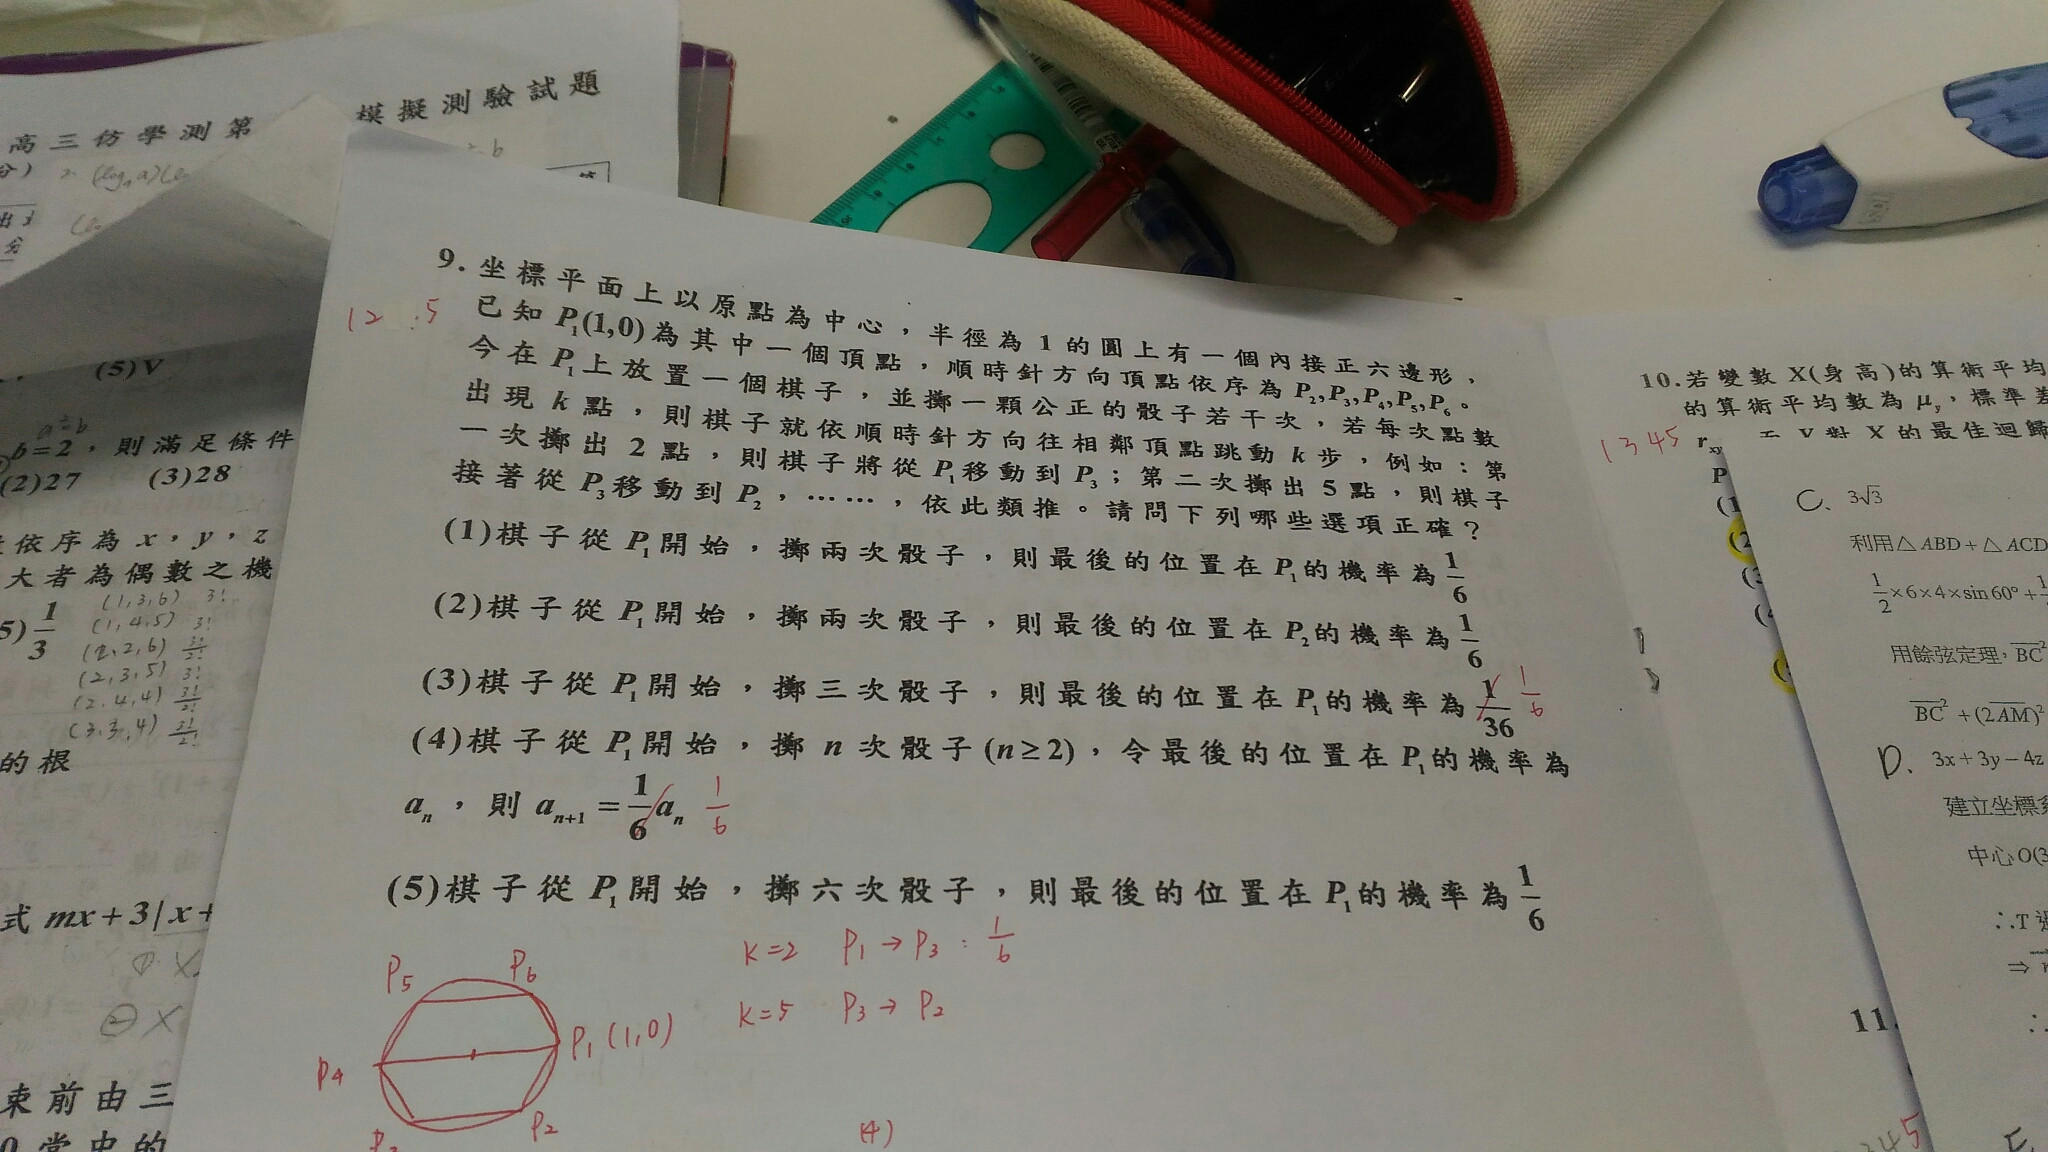 模擬測驗試題
高三仿學測第
(5)V
b=2，則滿足條件
(2)27 (3)28
依序為 x，y，z
大者為偶數之機
5) 1/3
(1,3,6) 3!
(1,4,5) 3!
(2,2,6) 3!/2!
(2,3,5) 3!
(2,4,4) 3!/2!
(3,3,4) 3!/2!
的根
式 mx+3|x+
束前由三
9. 坐標平面上以原點為中心，半徑為 1 的圓上有一個內接正六邊形，
已知 P₁(1,0)為其中一個頂點，順時針方向頂點依序為 P₂,P₃,P₄,P₅,P₆。
今在 P₁上放置一個棋子，並擲一顆公正的骰子若干次，若每次點數
出現 k 點，則棋子就依順時針方向往相鄰頂點跳動 k 步，例如：第
一次擲出 2 點，則棋子將從 P₁移動到 P₃；第二次擲出 5 點，則棋子
接著從 P₃移動到 P₂，……，依此類推。請問下列哪些選項正確？
(1)棋子從 P₁開始，擲兩次骰子，則最後的位置在 P₁的機率為 1/6
(2)棋子從 P₁開始，擲兩次骰子，則最後的位置在 P₂的機率為 1/6
(3)棋子從 P₁開始，擲三次骰子，則最後的位置在 P₁的機率為 1/36 1/6
(4)棋子從 P₁開始，擲 n 次骰子(n≥2)，令最後的位置在 P₁的機率為
aₙ，則 aₙ₊₁ = 1/6 aₙ 1/6
(5)棋子從 P₁開始，擲六次骰子，則最後的位置在 P₁的機率為 1/6
K=2 P₁→P₃ : 1/6
K=5 P₃→P₂
P₅ P₆
P₁(1,0)
P₄
P₂
(4)
10.若變數 X(身高)的算術平均
的算術平均數為 μy，標準差
1345 rxy
X 的最佳迴歸
11.
C、 3√3
利用△ABD+△ACD
1/2×6×4×sin60°+
用餘弦定理，BC²
BC²+(2AM)²
D、 3x+3y−4z
建立坐標系
中心O(3
∴T